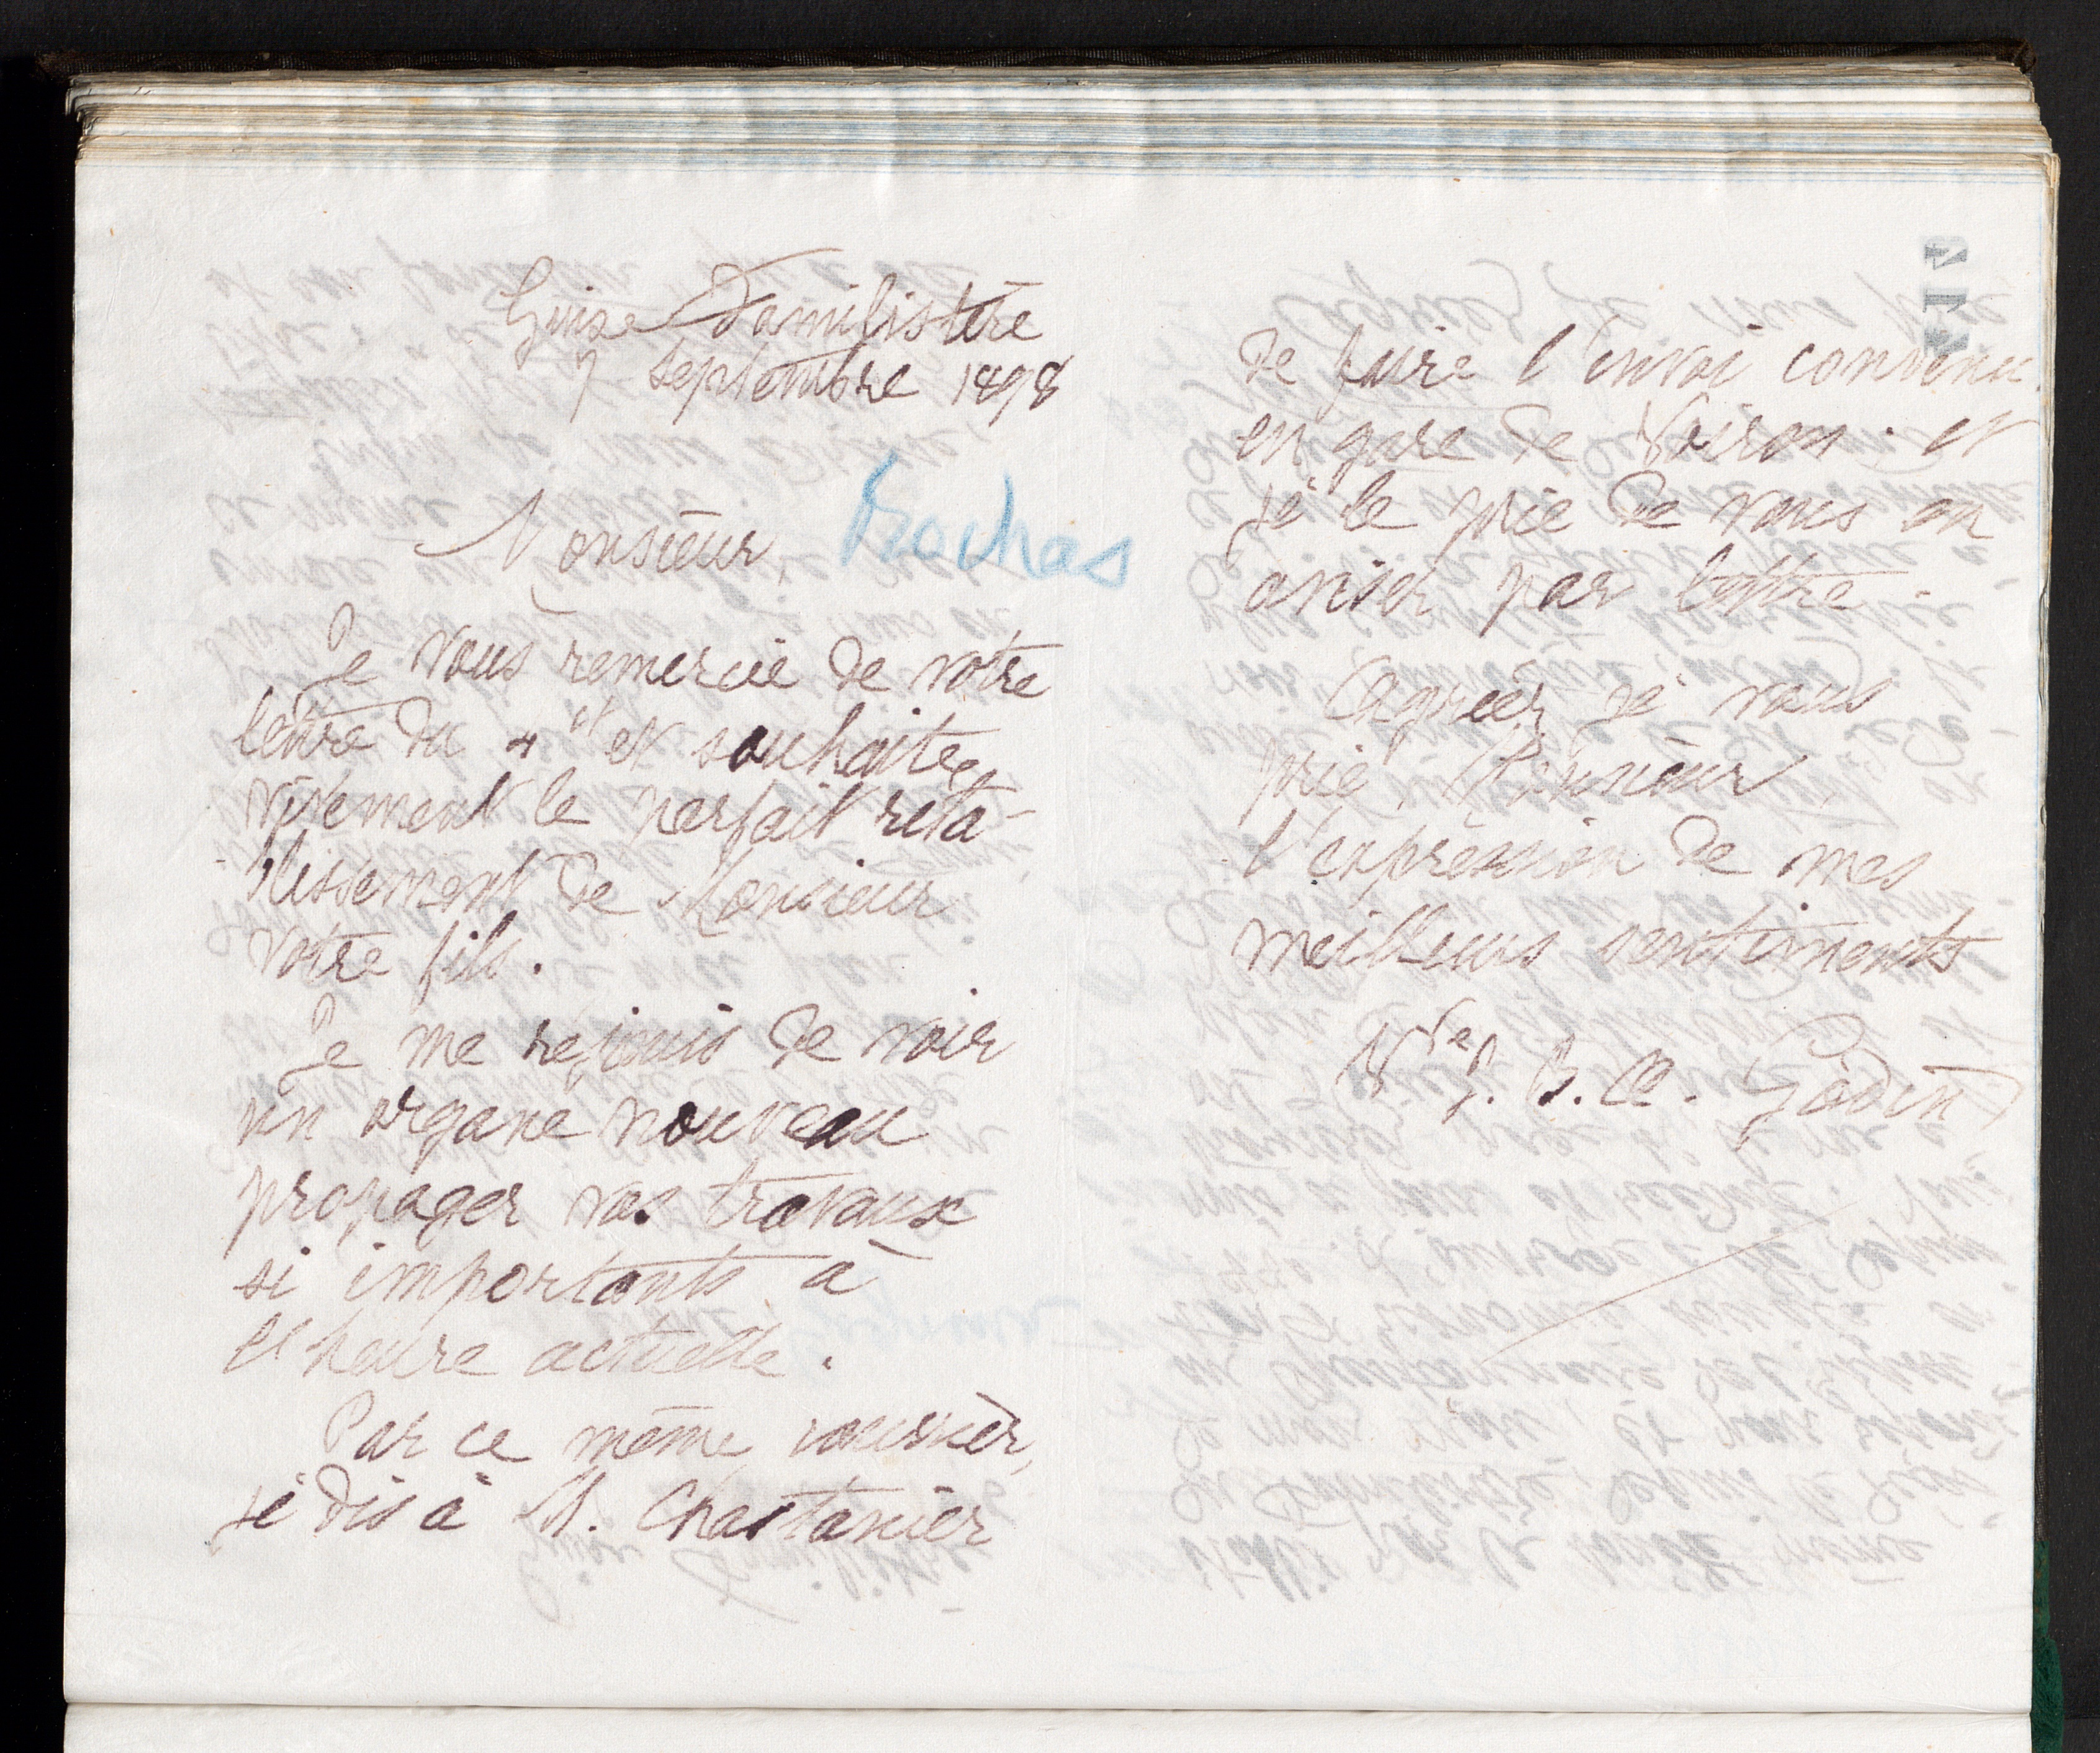 Guise Familistère
7 septembre 1898
Monsieur, Rochas
Je vous remercie de votre
lettre du 4 ct et souhaite
vivement le parfait réta-
blissement de Monsieur
votre fils.
Je me réjouis de voir
un organe nouveau
propager vos travaux
si importants à
l'heure actuelle.
Par ce même courrier,
je dis à M. Chastanier
de faire l'envoi convenu
en gare de Voiron et
je le prie de vous en
aviser par lettre.
Agréez je vous
prie, Monsieur,
l'expression de mes
meilleurs sentiments
Vve J. B. A. Godin